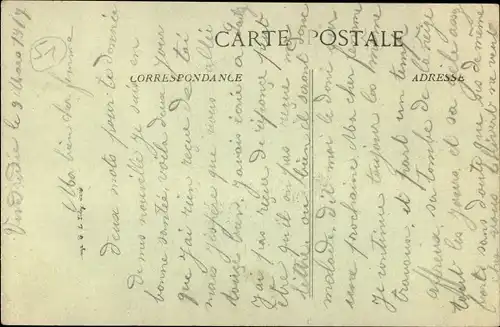 CARTE POSTALE
CORRESPONDANCE
ADRESSE
Vendredie le 9 Mars 1917
Ma bien cher femme
deux mots pour te donner
de mes nouvelle je suis en
bonne santée, voilà deux jour
que j'ai rien reçue de toi
mais j'espère que vous allée
tous bien, j'avais écrie a
j'ai pas reçue de réponse peut
être qu'il on pas reçue ma
lettre, ou bien il seront donc
malade, dit moi le donc
une prochaine. Ma cher femme
je continue toujour la même
travaux, et part un temp
affreuse, sa tombe de la neige
tout les jours et sa gèle assez
fort, sans doute que s'est de même